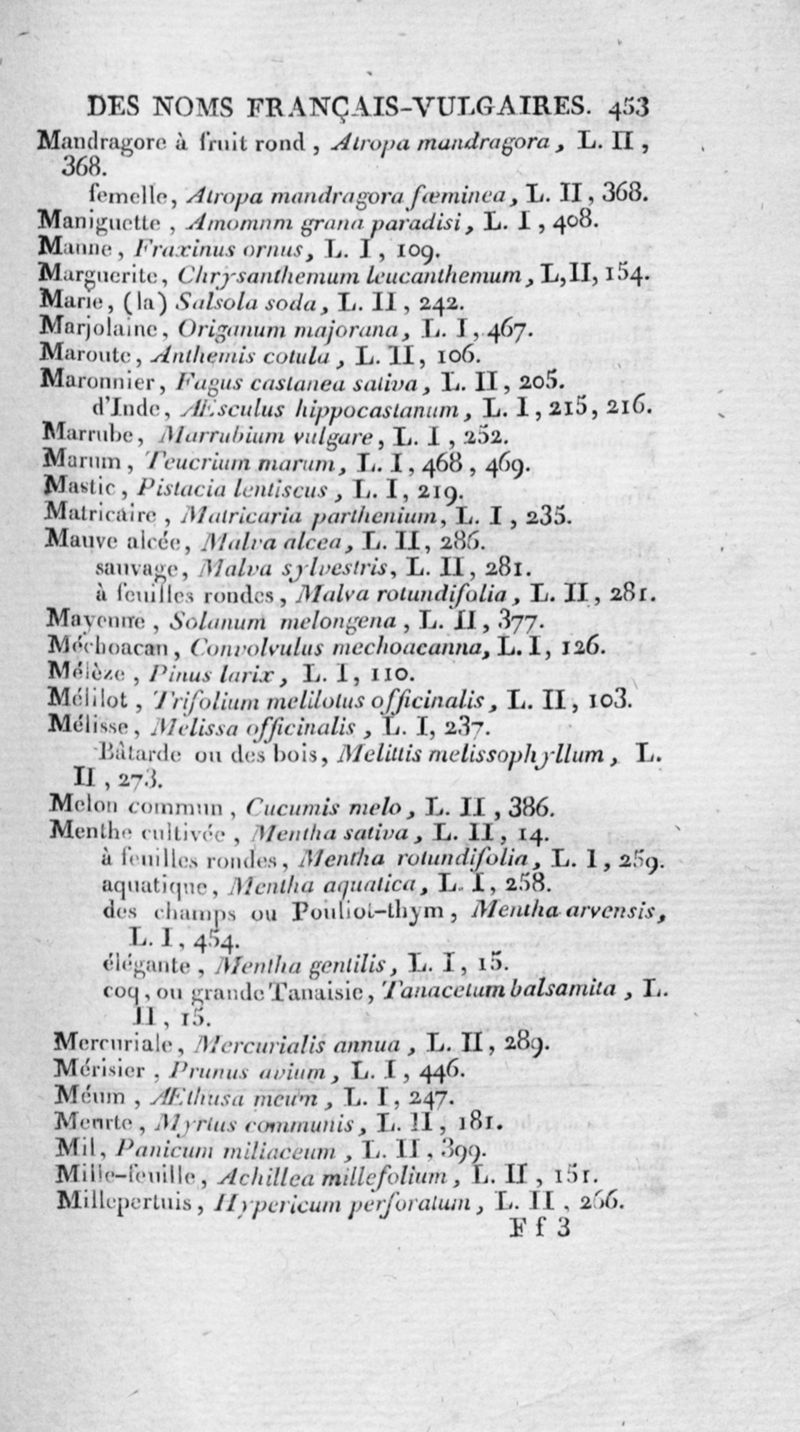 DES NOMS FRANÇAIS-VULGAIRES. 453
Mandragore à fruit rond , Atropa mandragora , L. II ,
368.
femelle, Atropa mandragora fœminea, L. II, 368.
Maniguette , Amomum grana paradisi, L. I , 408.
Manne, Fraxinus ornus, L. I , 109.
Marguerite, Chrysanthemum leucanthemum, L,II, 154.
Marie, (la) Salsola soda, L. II , 242.
Marjolaine, Origanum majorana, L. I, 467.
Maroute, Anthemis cotula , L. II, 106.
Maronnier, Fagus castanea sativa, L. II, 205.
d'Inde, Æsculus hippocastanum, L. I, 215, 216.
Marrube, Marrubium vulgare, L. I , 252.
Marum , Teucrium marum, L. I, 468 , 469.
Mastic , Pistacia lentiscus , L. I, 219.
Matricaire , Matricaria parthenium, L. I , 235.
Mauve alcée, Malva alcea, L. II, 286.
sauvage, Malva sylvestris, L. II, 281.
à feuilles rondes, Malva rotundifolia, L. II, 281.
Mayenne , Solanum melongena , L. II, 377.
Méchoacan, Convolvulus mechoacanna, L. I, 126.
Mélèze , Pinus larix, L. I, 110.
Mélilot , Trifolium melilotus officinalis, L. II, 103.
Mélisse, Melissa officinalis , L. I, 237.
Bâtarde ou des bois, Melittis melissophyllum, L.
II , 273.
Melon commun , Cucumis melo, L. II , 386.
Menthe cultivée , Mentha sativa, L. II, 14.
à feuilles rondes, Mentha rotundifolia, L. I, 259.
aquatique, Mentha aquatica, L. I, 258.
des champs ou Pouliot-thym, Mentha arvensis,
L. I, 454.
élégante , Mentha gentilis, L. I, 15.
coq, ou grande Tanaisie, Tanacetum balsamita , L.
II, 15.
Mercuriale, Mercurialis annua , L. II, 289.
Mérisier , Prunus avium, L. I , 446.
Méum , Æthusa meum , L. I, 247.
Menrte, Myrtus communis, L. II, 181.
Mil, Panicum miliaceum , L. II, 399.
Mille-feuille, Achillea millefolium, L. II , 151.
Millepertuis, Hypericum perforatum, L. II , 266.
F f 3